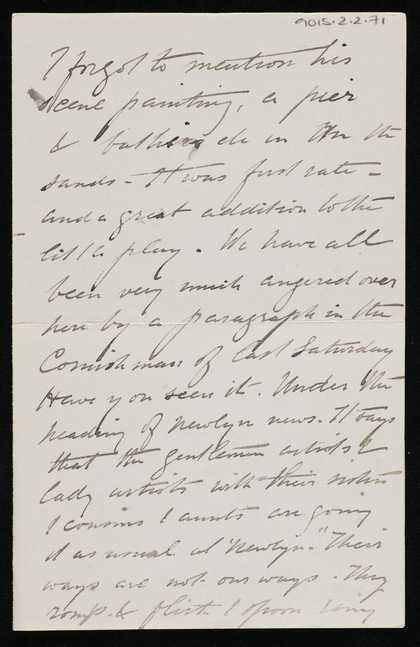 9015.2.2.71
I forgot to mention his
scene painting, a pier
& bathing etc in on the
sands - It was first rate -
and a great addition to the
little play. We have all
been very much angered over
here by a paragraph in the
Cornishman of last Saturday
Have you seen it. Under the
heading of Newlyn news. It says
that the gentlemen artists &
lady artists with their sisters
& cousins & aunts are going
it as usual at Newlyn." Their
ways are not our ways. They
romp & flirt & spoon